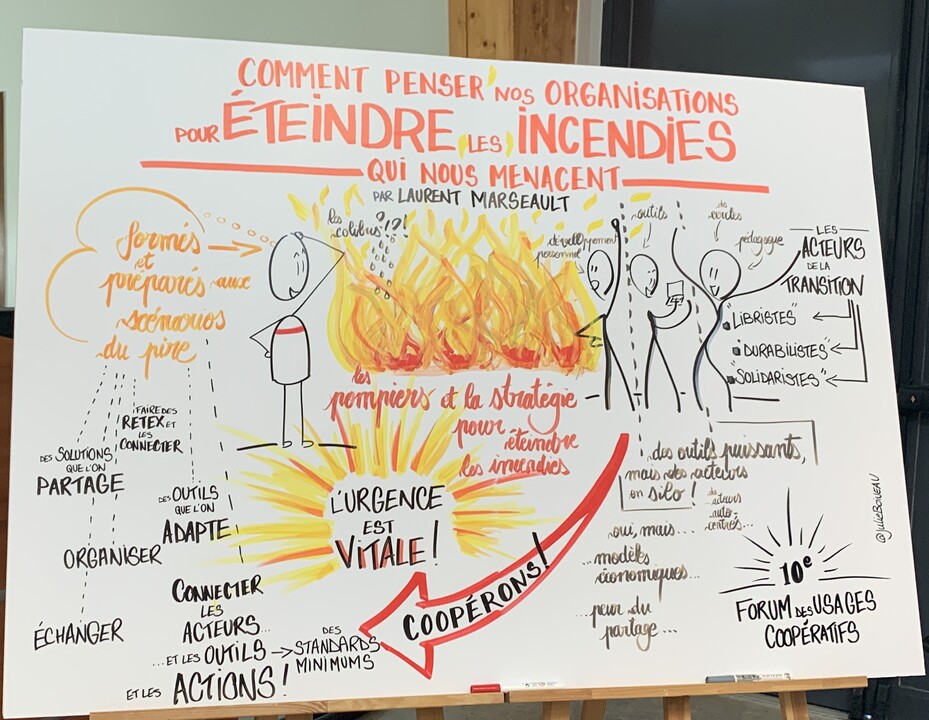 COMMENT PENSER NOS ORGANISATIONS
POUR ÉTEINDRE LES INCENDIES
QUI NOUS MENACENT
PAR LAURENT MARSEAULT
les
colibris ?!?!
formés
et
préparés aux
scénarios
du pire
développement
personnel
outils
des
cercles
pédagogue
LES
ACTEURS
DE LA
TRANSITION
"LIBRISTES"
"DURABILISTES"
"SOLIDARISTES"
les
pompiers et la stratégie
pour
éteindre
les incendies
FAIRE DES
RETEX ET
LES
CONNECTER
DES SOLUTIONS
QUE L'ON
PARTAGE
DES OUTILS
QUE L'ON
ADAPTE
ORGANISER
ÉCHANGER
CONNECTER
LES
ACTEURS...
...ET LES OUTILS
ET LES ACTIONS!
DES
STANDARDS
MINIMUMS
L'URGENCE
EST
VITALE!
COOPÉRONS!
des outils puissants,
mais des acteurs
en silo!
des
acteurs
auto-
centrés...
oui, mais...
...modèles
économiques...
...peur du
partage...
10e
FORUM DES USAGES
COOPÉRATIFS
@JULIEBOIVEAU